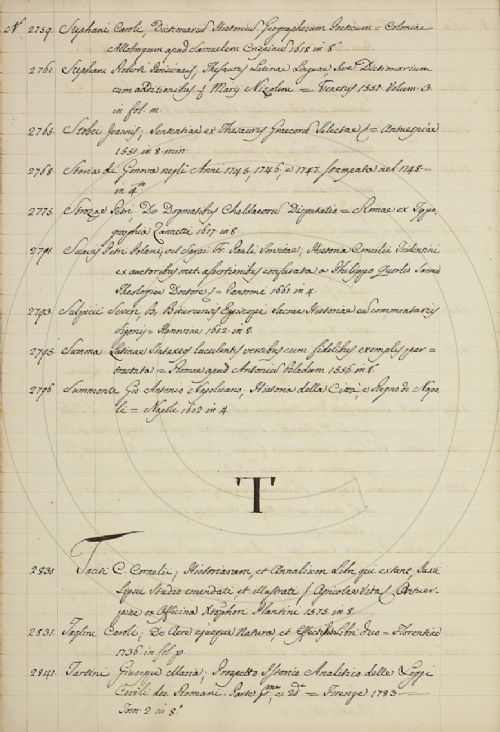 N.º 2759. Stephani Caroli, Dictionarius Historicus Geographicum Poeticum = Coloniae
Allobrogum apud Samuelem Crispinus 1618 in 8.º
2761. Stephani Roberti Parisiensis, Thesaurus Latinae Linguae Sive Dictionarium
cum additionibus Marij Nizolini = Venetiis 1551. Volum. 3.
in fol. m.
2765. Stobei Joannis; Sententiae ex Thesauris Graecorum Selectae = Antuerpiae
1551. in 8. min.
2768. Storia di Genova negli Anni 1745, 1746, e 1747. stampata nel 1748
in 4.to
2775. Strozae Petri, De Dogmatibus Chaldaeorum Disputatio = Romae ex Typo
graphia Zannetti 1617 in 8.
2791. Suavis Petri Polani, vel Sarpi Fr. Pauli Servitae; Historia Concilii Tridentini
ex auctoribus met assertionibus confutata a Philippo Quorlio Sacrae
Theologiae Doctore = Panormi 1661 in 4.
2793. Sulpicii Severi, B. Bituricensis Episcopi Sacrae Historiae cum commentariis
Sigonii = Hanoviae 1602 in 8.
2795. Summa Latinae Sintaxeos luculentis versibus cum fidelibus exemplis per=
tractata = Romae apud Antonium Bladum 1556 in 8.
2796. Summonte Gio Antonio Napoletano, Historia della Città, e Regno di Napo
li = Napoli 1602 in 4.
T
2830. Taciti C. Cornelii; Historiarum, et Annalium Libri qui extant, Justi
Lipsii Studio emendati et illustrati Agricolae Vita Antuer-
piae ex Officina Xtophori Plantini 1575 in 8.
2831. Taglini Caroli, De Aere ejusque Natura, et Effectibus Libri duo = Florentiae
1736 in fol. p.
2841. Tartini Giuseppe Maria; Prospetto Istorico Analitico delle Leggi
Civili dei Romani. Parte pma e 2da = Firenze 1783
Tom. 2 in 8.º